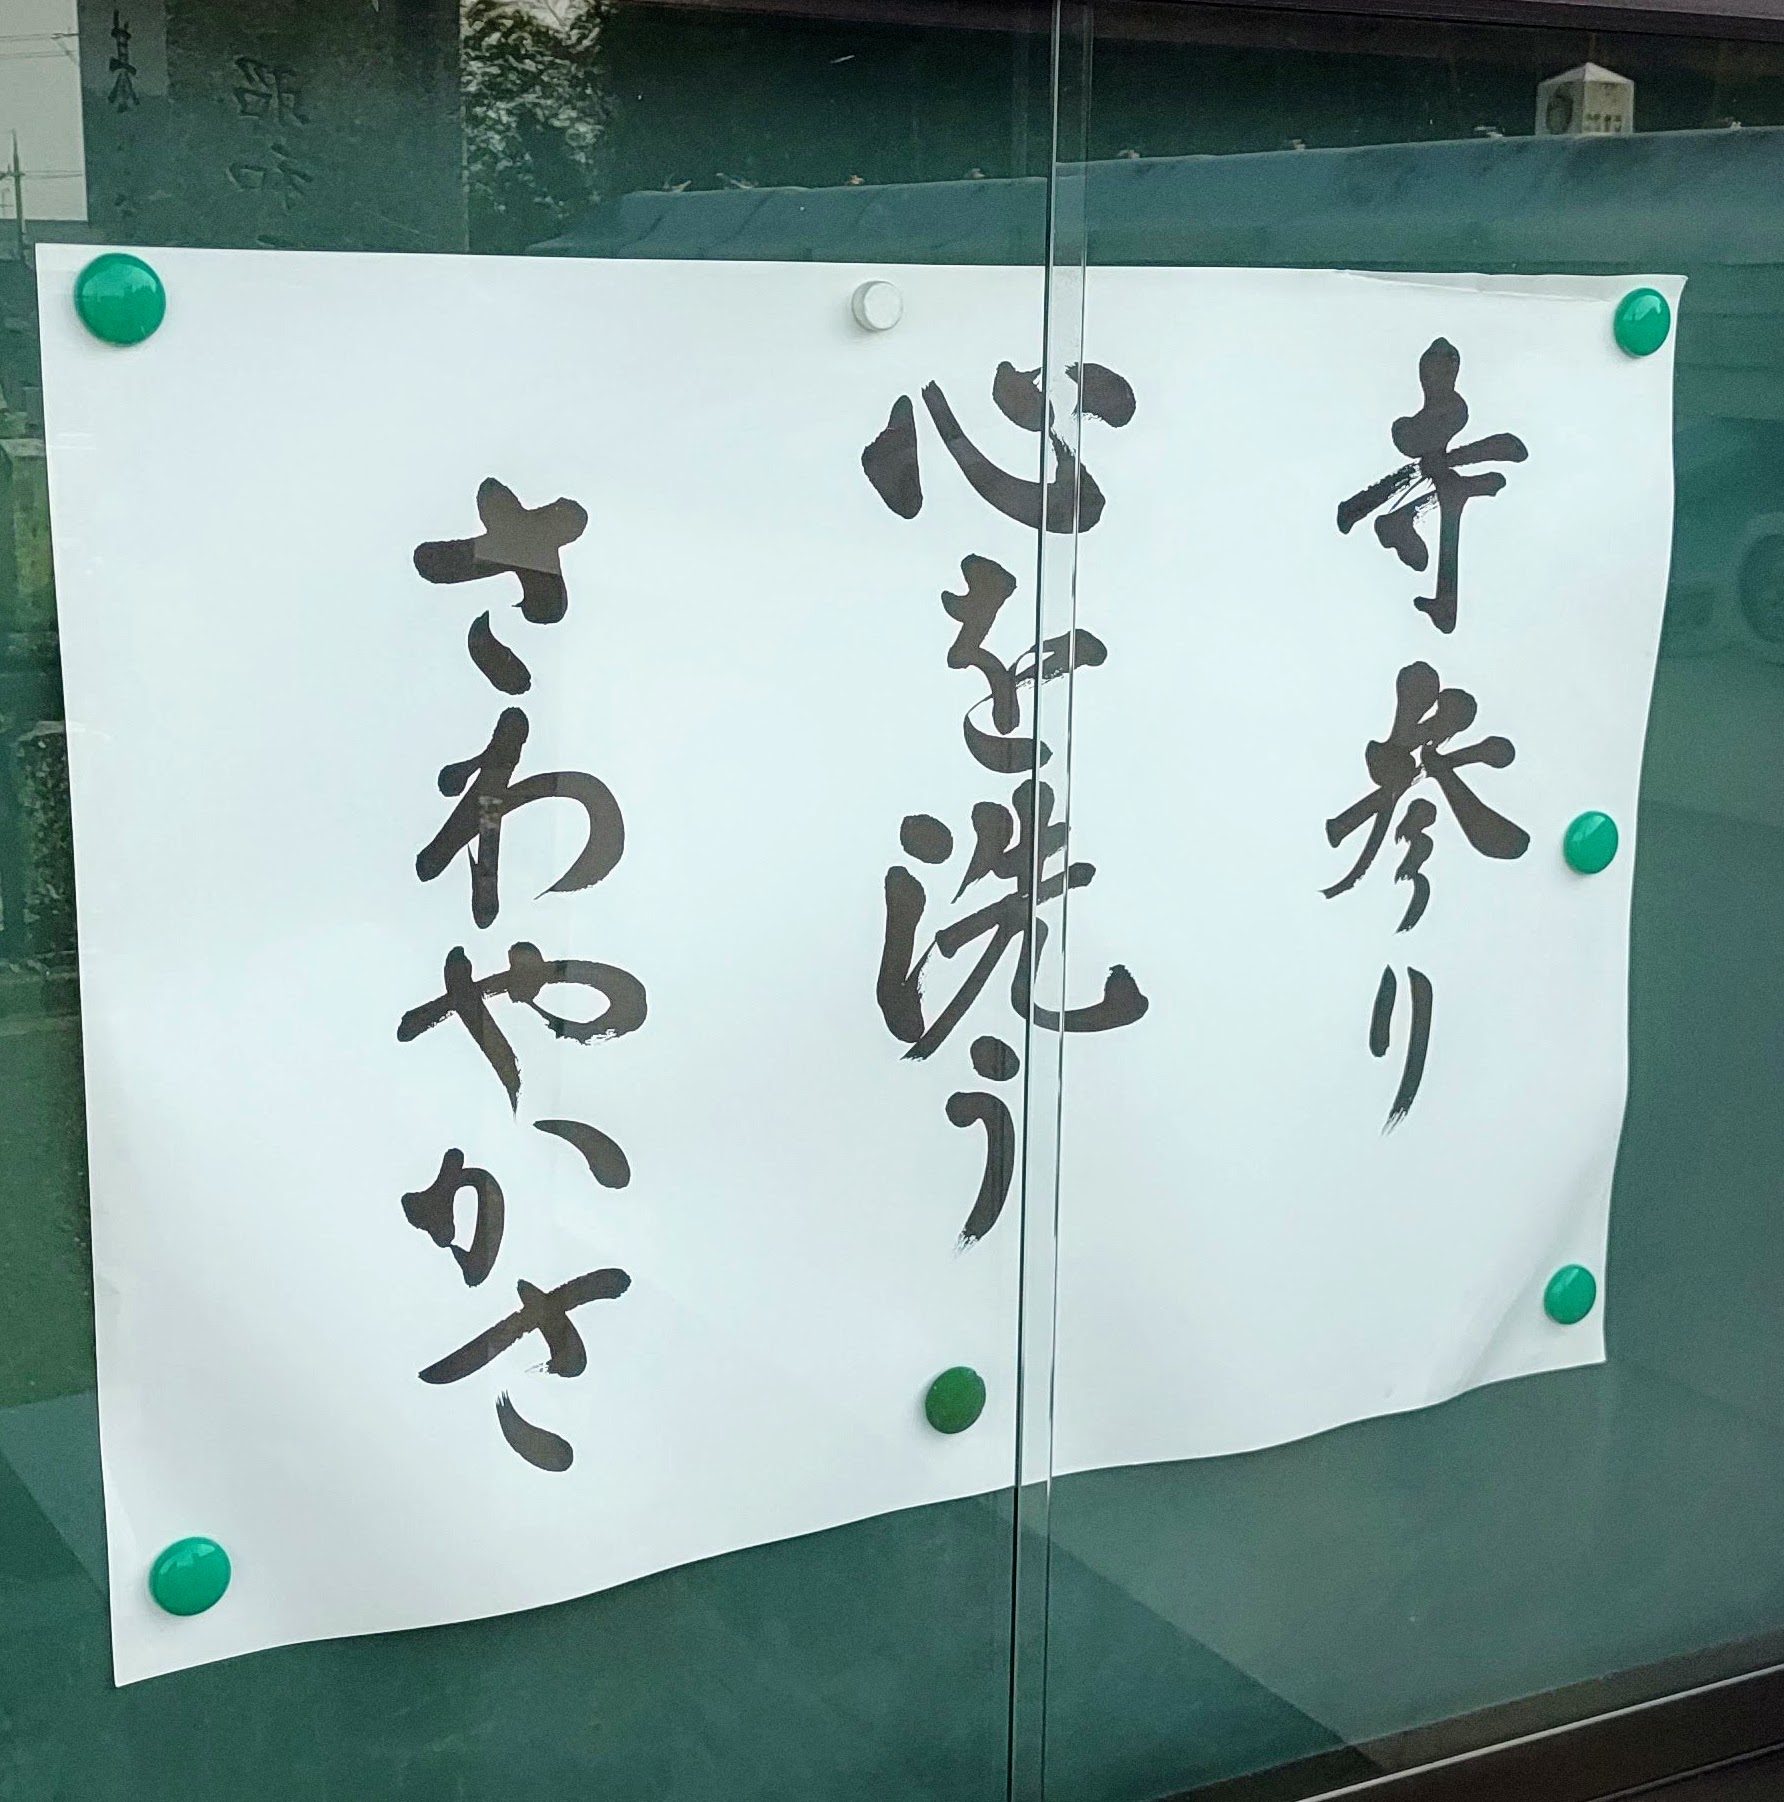 寺参り
心を洗う
さわやかさ
昭和